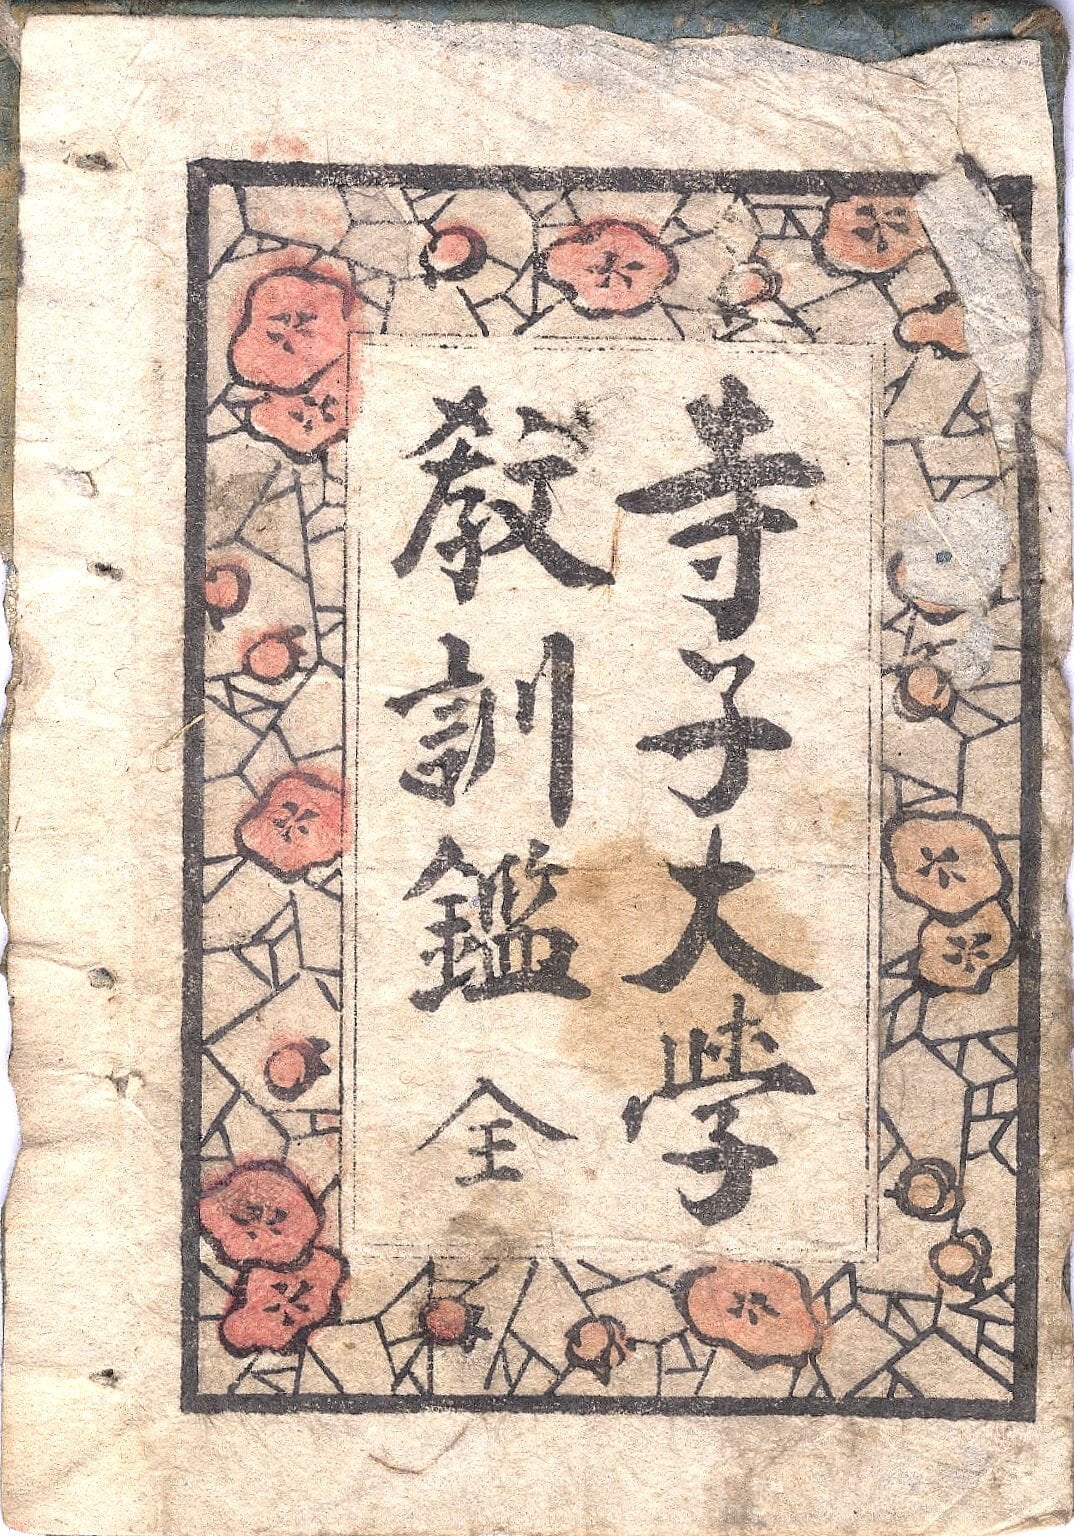 寺子大学
教訓鑑 全